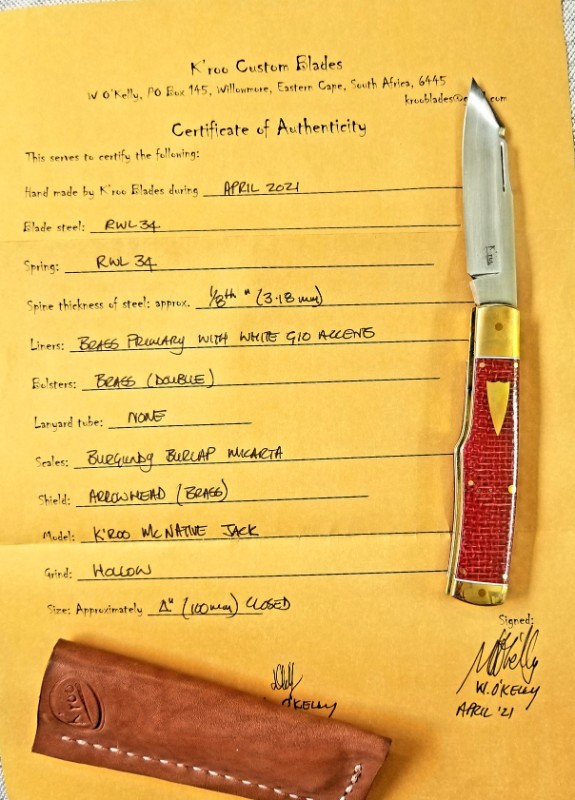 K'roo Custom Blades
W O'Kelly, PO Box 145, Willowmore, Eastern Cape, South Africa, 6445
Certificate of Authenticity
This serves to certify the following:
Hand made by K'roo Blades during APRIL 2021
Blade steel: RWL 34
Spring: RWL 34
Spine thickness of steel: approx. 1/8th " (3.18 mm)
Liners: BRASS PRIMARY WITH WHITE G10 ACCENTS
Bolsters: BRASS (DOUBLE)
Lanyard tube: NONE
Scales: BURGUNDY BURLAP MICARTA
Shield: ARROWHEAD (BRASS)
Model: K'ROO MC NATIVE JACK
Grind: HOLLOW
Size: Approximately 4" (100mm) CLOSED
Signed:
W. O'KELLY
APRIL '21
O'KELLY
K'roo
K'roo